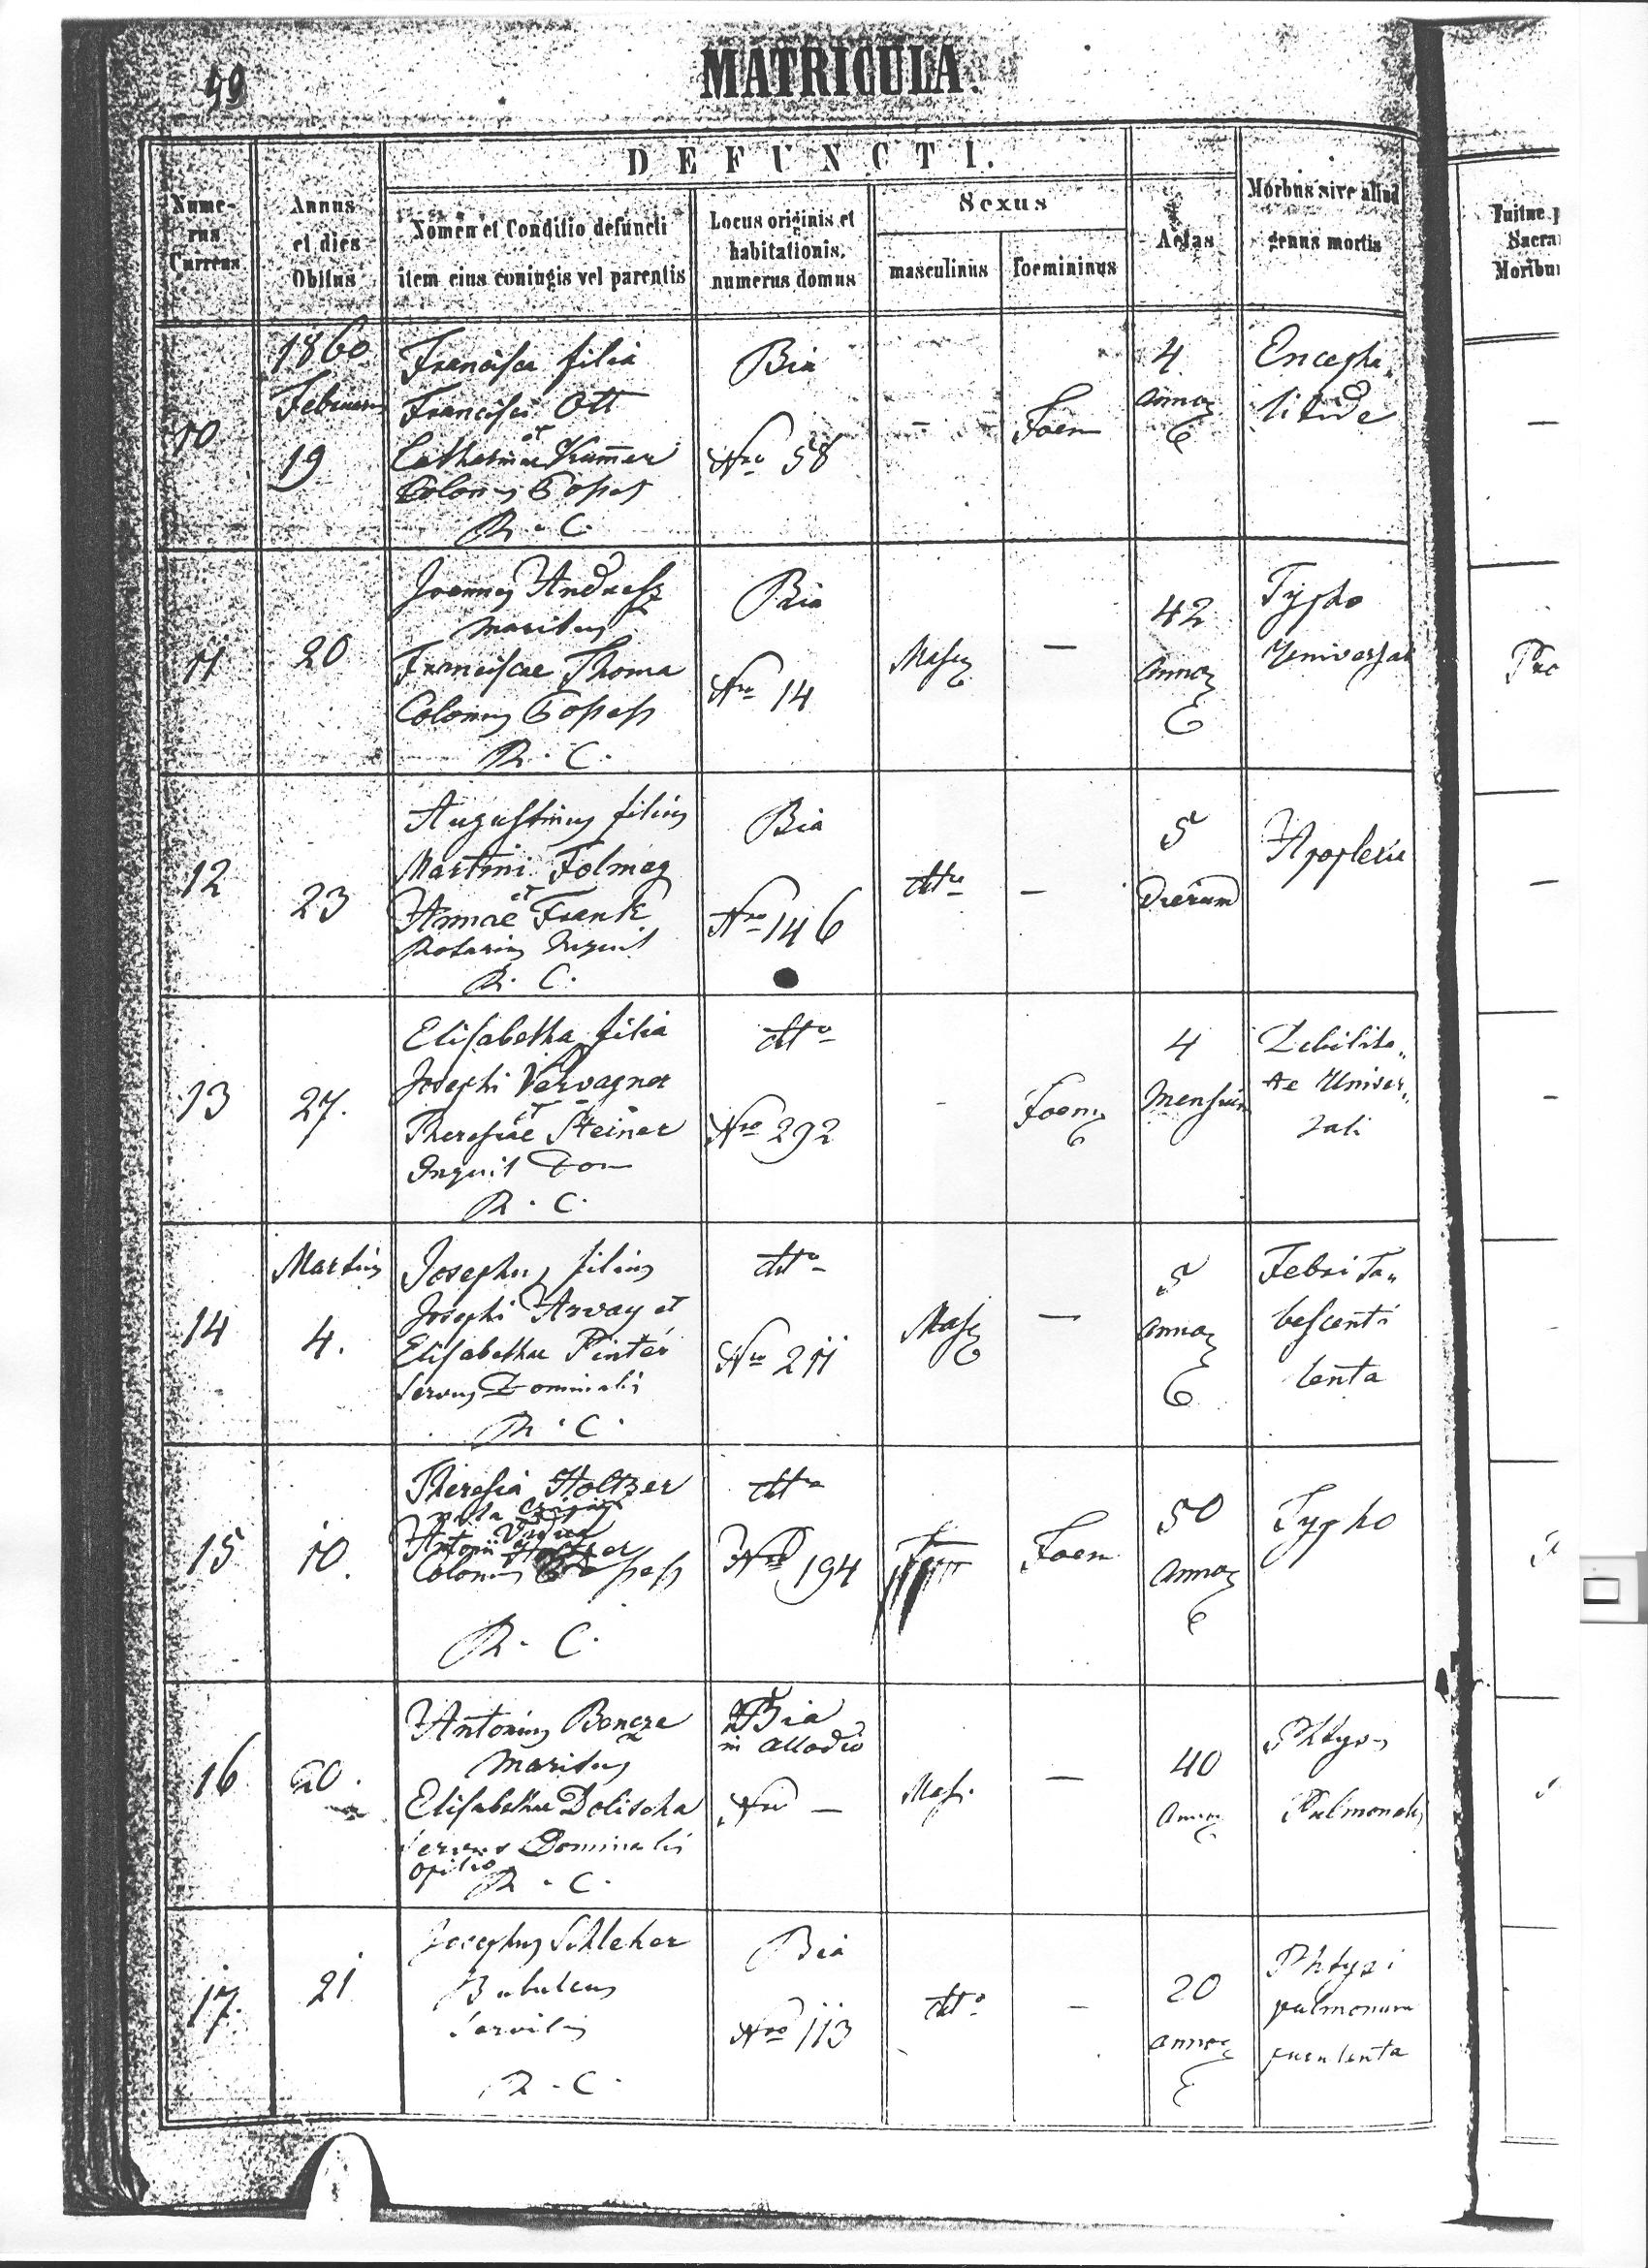 99
MATRICULA.
DEFUNCTI.
Nume-
rus
Currens
Annus
et dies
Obitus
Nomen et Conditio defuncti
item eius coniugis vel parentis
Locus originis et
habitationis,
numerus domus
Sexus
masculinus
foemininus
Aetas
Morbus sive aliud
genus mortis
Sacra
Moribu
10
1860
Februarius
19
Francisca filia
Francisci Ott
et
Catharinae Kramer
Colonus Possess
R. C.
Bia
Nro 58
–
Foem
4
annor
Encepha„
litide
11
20
Joannes Andress
maritus
Franciscae Thoma
Colonus Possess
R. C.
Bia
Nro 14
Masc
—
42
annor
Typho
Universal
12
23
Augustinus filius
Martini Folmeg
et
Annae Frank
Rotarius Inquil
R. C.
Bia
Nro 146
dtto
–
5
Dierum
Apoplexia
13
27.
Elisabetha filia
Josephi Vervagner
et
Theresiae Steiner
Inquil Dom
R. C.
dtto
Nro 292
-
Foem
4
Mensium
Debilita„
te Univer„
sali
14
Martius
4.
Josephus filius
Josephi Arvay et
Elisabethae Pintér
Servus Dominalis
R. C.
dtto
Nro 211
Masc
—
5
annor
Febri Ta„
bescenti
lenta
15
10.
Theresia Holtzer
Vidua
Antonii
Colonus
R. C.
dtto
Nro 194
Foem
50
annor
Typho
16
20.
Antonius Bencze
Maritus
Elisabethae Dolischa
Servus Dominalis
opilio
R. C.
Bia
in allodio
Nro —
Masc.
—
40
annor
Phtysis
Pulmonalis
17.
21
Josephus Schleher
Bubulcus
Servilis
R. C.
Bia
Nro 113
dtto
–
20
annor
Phtysi
pulmonum
purulenta